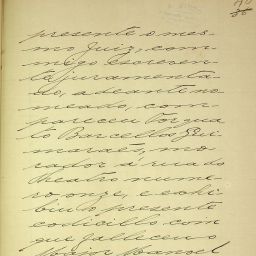 presente o mes-
mo Juiz, com-
migo escreven-
te juramenta-
do, adeante no-
meado, com-
pareceu Torqua-
to Barcellos Gui-
maraẽs, mo-
rador á rua do
Theatro nume-
ro onze, e exhi-
biu o presente
codicillo com
que falleceu
Major Manoel